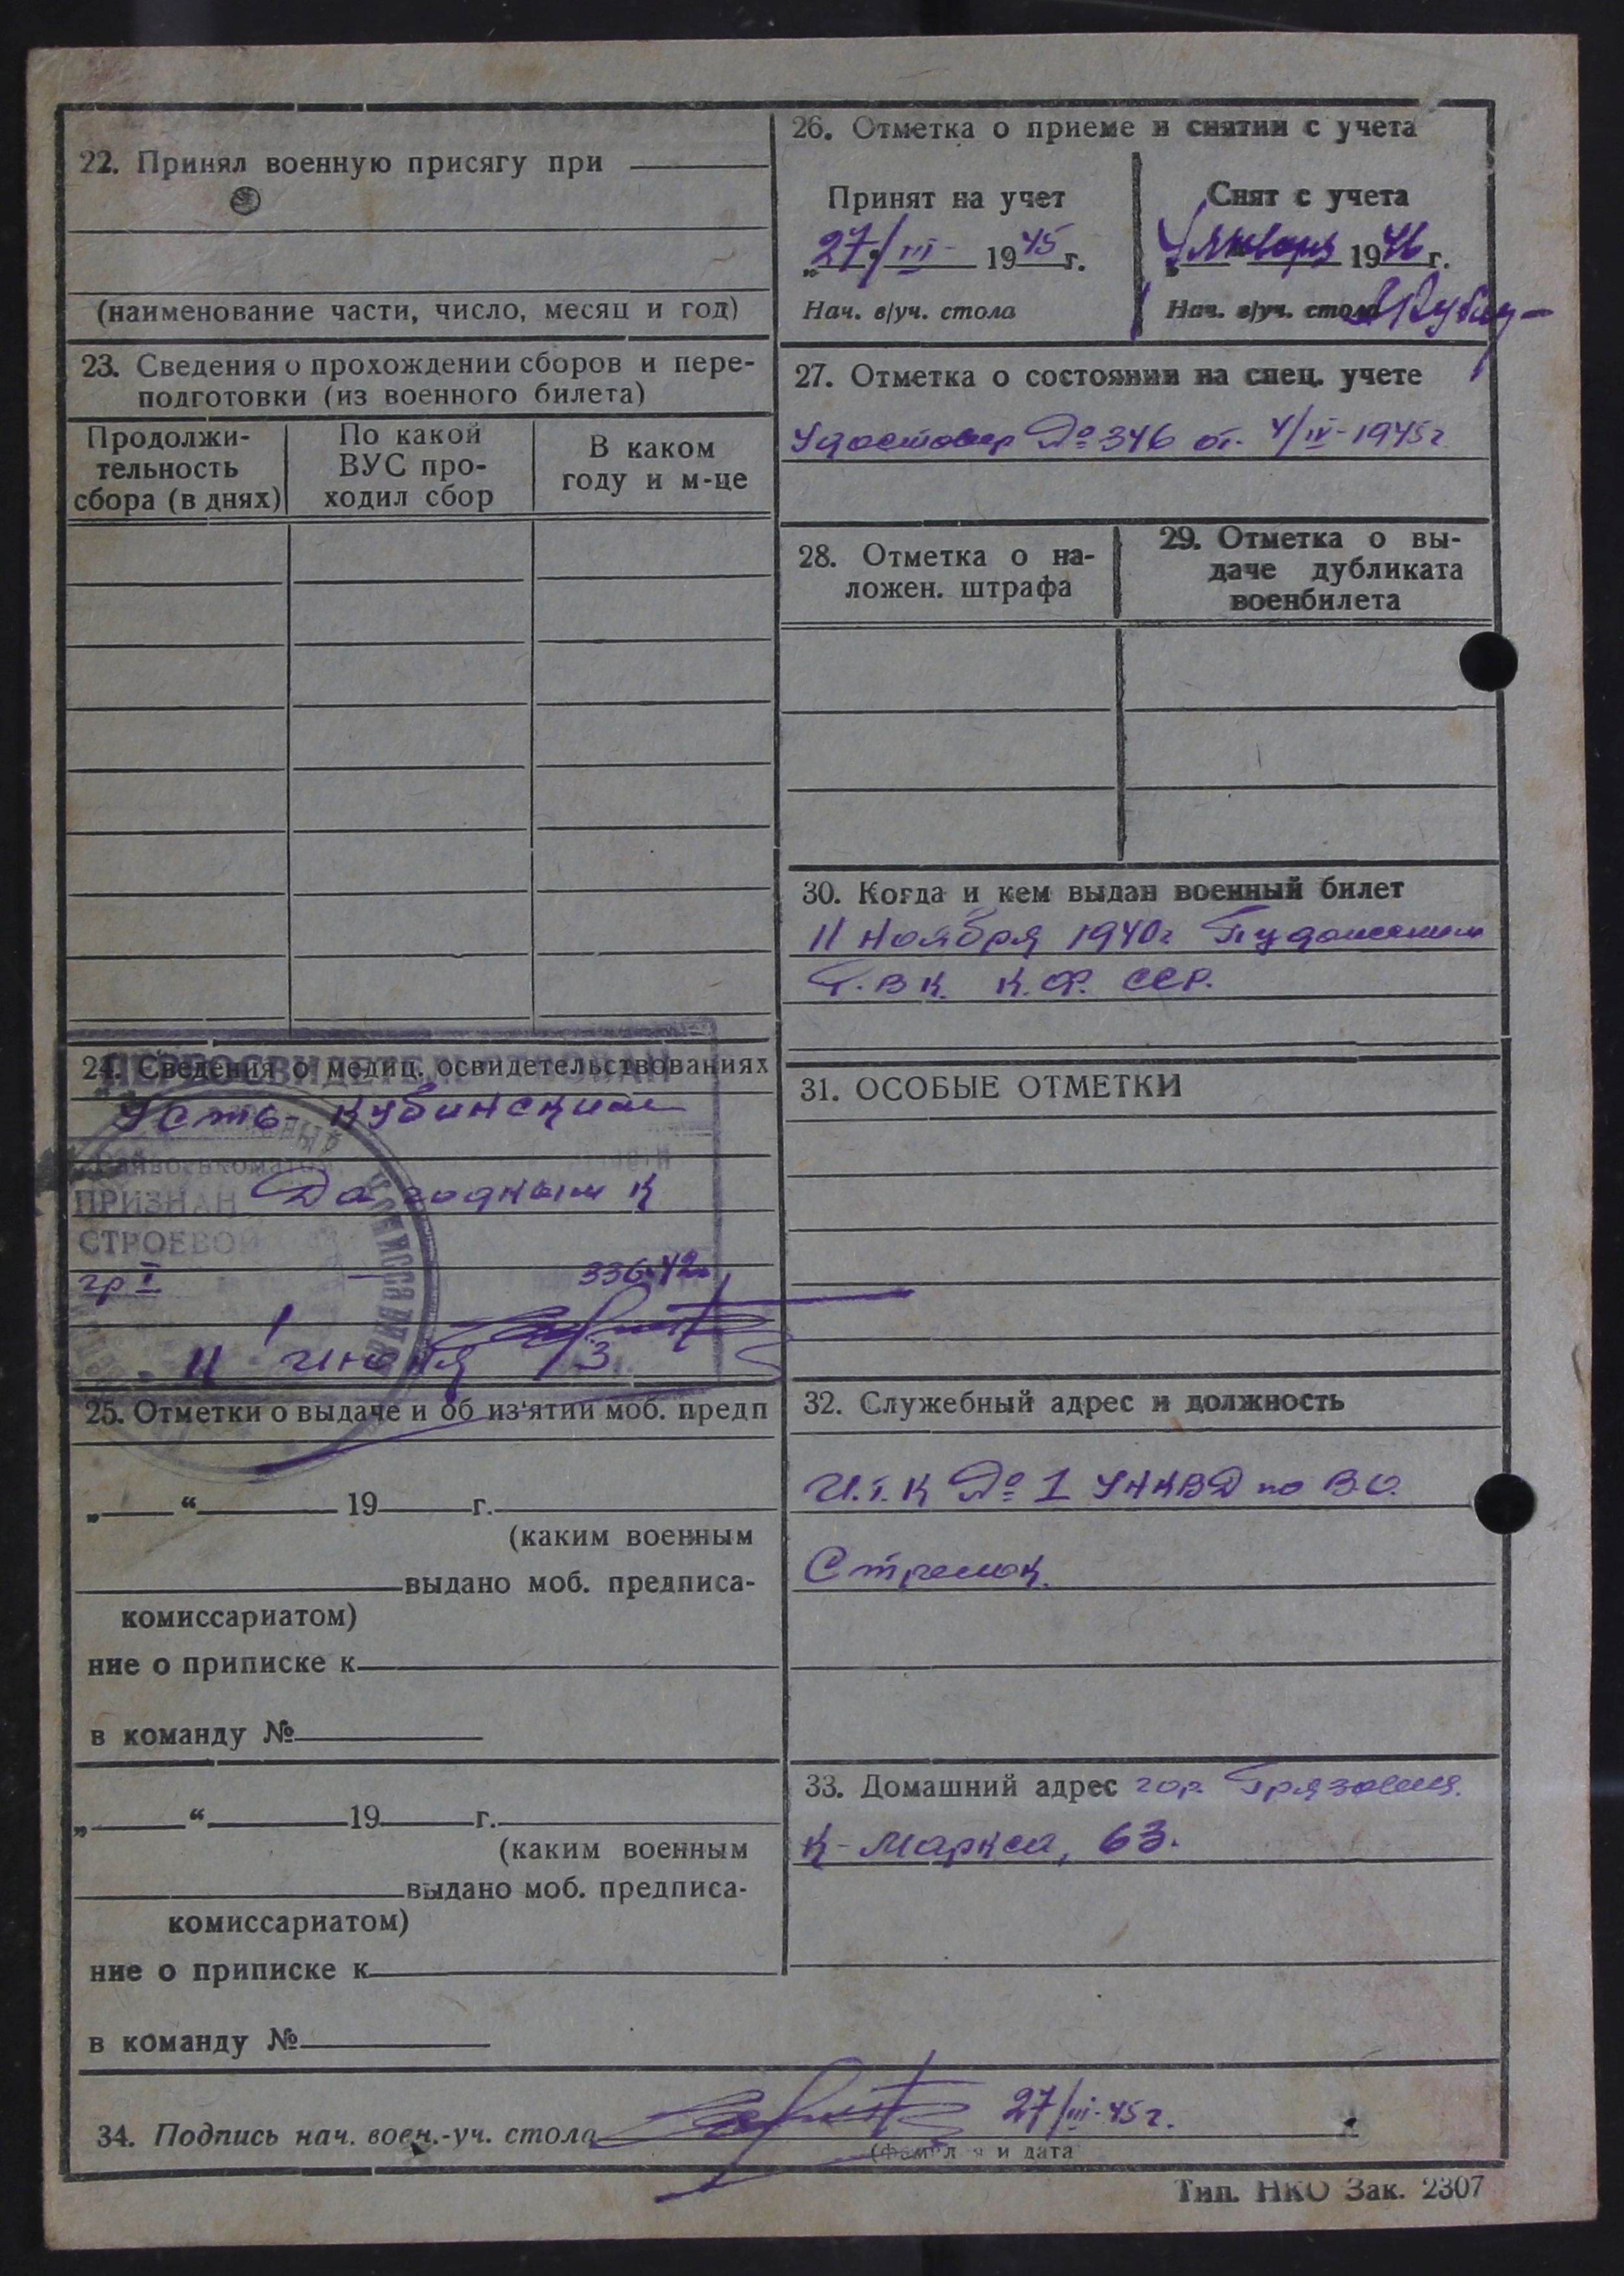 22. Принял военную присягу при
(наименование части, число, месяц и год)
23. Сведения о прохождении сборов и пере-
подготовки (из военного билета)
Продолжи-
тельность
сбора (в днях)
По какой
ВУС про-
ходил сбор
В каком
году и м-це
24. Сведения о медиц. освидетельствованиях
ПЕРЕОСВИДЕТЕЛЬСТВОВАН
Усть-Кубинским
Райвоенкоматом
ПРИЗНАН годным к
СТРОЕВОЙ
гр I
336-42
11 июня 43
25. Отметки о выдаче и об из'ятии моб. предп
„ “ 19 г.
(каким военным
выдано моб. предписа-
комиссариатом)
ние о приписке к
в команду №
„ “ 19 г.
(каким военным
выдано моб. предписа-
комиссариатом)
ние о приписке к
в команду №
26. Отметка о приеме и снятии с учета
Принят на учет
„27/III- 1945 г.
Нач. в/уч. стола
Снят с учета
4 января 1946 г.
Нач. в/уч. стола
27. Отметка о состоянии на спец. учете
Удостовер № 346 от. 4/IV-1945 г
28. Отметка о на-
ложен. штрафа
29. Отметка о вы-
даче дубликата
военбилета
30. Когда и кем выдан военный билет
11 Ноября 1940 г Пудожским
Р.В К. К.Ф. ССР.
31. ОСОБЫЕ ОТМЕТКИ
32. Служебный адрес и должность
И.Т.К № 1 УНКВД по В.О.
Стрелок.
33. Домашний адрес гор. Грязовец.
К-Маркса, 63.
34. Подпись нач. воен.-уч. стола 27/III-45 г.
(фамилия и дата
Тип. НКО Зак. 2307